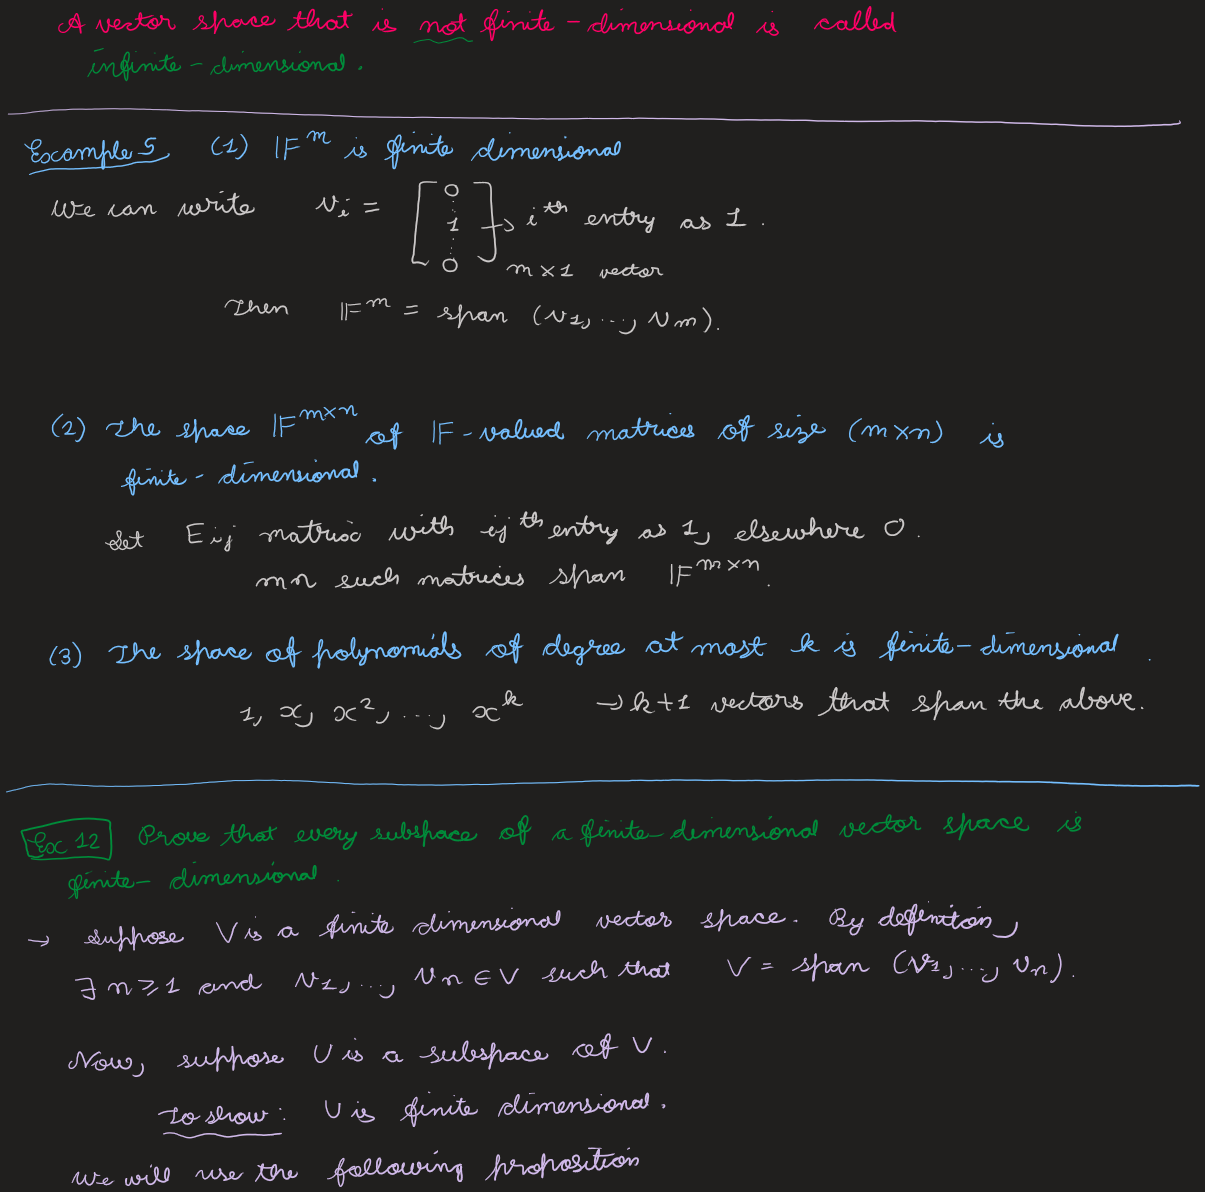 A vector space that is not finite-dimensional is called
infinite-dimensional.
Example 5 (1) 𝔽^m is finite dimensional
We can write v_i = [0 ⋮ 1 ⋮ 0] → i^th entry as 1.
m×1 vector
Then 𝔽^m = span (v_1, ..., v_m).
(2) The space 𝔽^{m×n} of 𝔽-valued matrices of size (m×n) is
finite-dimensional.
Set E_ij matrix with ij^th entry as 1, elsewhere 0.
mn such matrices span 𝔽^{m×n}.
(3) The space of polynomials of degree at most k is finite-dimensional.
1, x, x^2, ..., x^k → k+1 vectors that span the above.
Exc 12 Prove that every subspace of a finite-dimensional vector space is
finite-dimensional.
→ suppose V is a finite dimensional vector space. By definiton,
∃ n ≥ 1 and v_1, ..., v_n ∈ V such that V = span (v_1, ..., v_n).
Now, suppose U is a subspace of V.
To show: U is finite dimensional.
We will use the following proposition